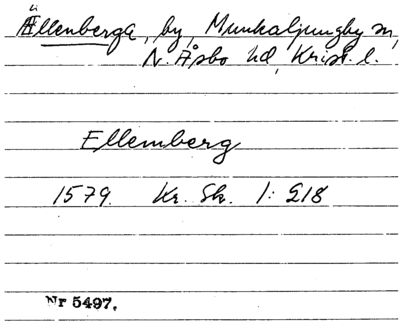 Ällenberga, by, Munkaljungby sn,
N. Åsbo hd, Krist. l.
Ellemberg
1579. Kr. Sk. 1: 218
Nr 5497.